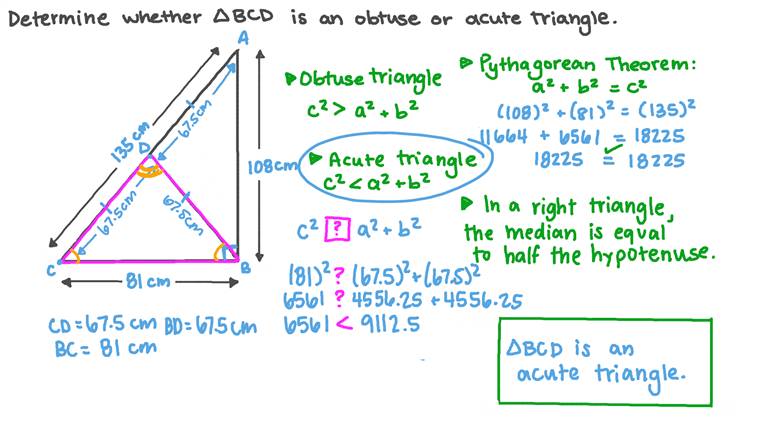 Determine whether △BCD is an obtuse or acute triangle.
A
135 cm
67.5cm
D
108cm
67.5cm
67.5cm
C
B
81 cm
CD=67.5 cm BD=67.5cm
BC= 81 cm
▸Obtuse triangle
c² > a² + b²
▸ Acute triangle
c² < a² + b²
c² ? a² + b²
(81)² ? (67.5)² + (67.5)²
6561 ? 4556.25 + 4556.25
6561 < 9112.5
▸ Pythagorean Theorem:
a² + b² = c²
(108)² + (81)² = (135)²
11664 + 6561 = 18225
18225 = 18225
▸ In a right triangle,
the median is equal
to half the hypotenuse.
△BCD is an
acute triangle.